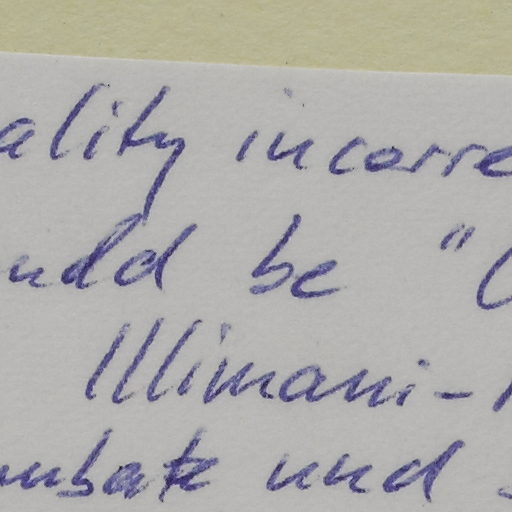 ality incorre
ould be "C
Illimani-
und